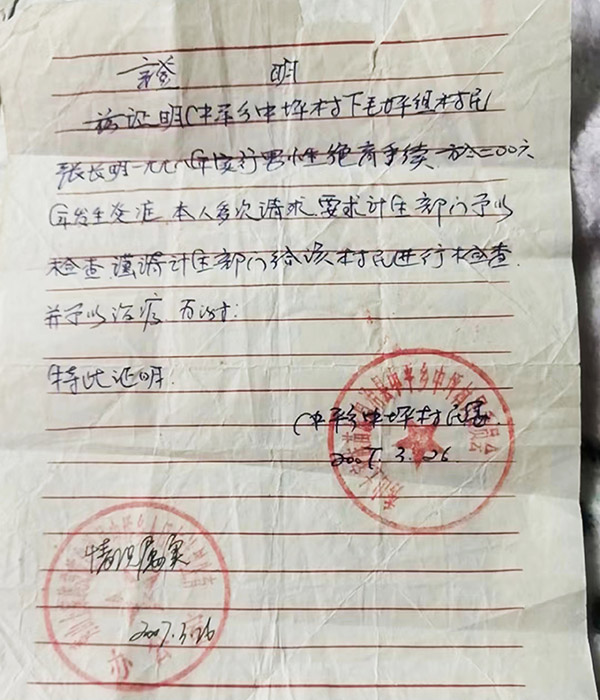 证 明
兹证明(中平乡中坪村下毛坪组村民
张长明一九八 年实行男性绝育手续.于二00六
年发生炎症 本人多次请求.要求计生部门予以
检查.谨请计生部门给该村民进行检查.
并予以治疗 为盼:
特此证明.
中平乡中坪村民委.
2007.3.26
情况属实
2007.3.26